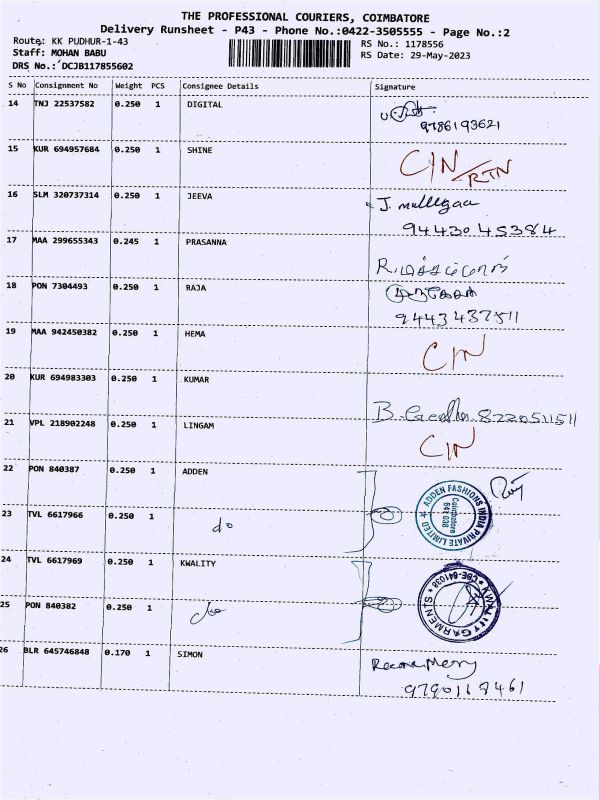 THE PROFESSIONAL COURIERS, COIMBATORE
Delivery Runsheet - P43 - Phone No.:0422-3505555 - Page No.:2
Route: KK PUDHUR-1-43
RS No.: 1178556
Staff: MOHAN BABU
RS Date: 29-May-2023
DRS No.: DCJB117855602
S No Consignment No Weight PCS Consignee Details Signature
14 TNJ 22537582 0.250 1 DIGITAL
9786193621
15 KUR 694957684 0.250 1 SHINE
CIN/RTN
16 SLM 320737314 0.250 1 JEEVA
J.
9443045384
17 MAA 299655343 0.245 1 PRASANNA
18 PON 7304493 0.250 1 RAJA
9443437511
19 MAA 942450382 0.250 1 HEMA
CIN
20 KUR 694983303 0.250 1 KUMAR
B. 8220511511
21 VPL 218902248 0.250 1 LINGAM
CIN
22 PON 840387 0.250 1 ADDEN
ADDEN FASHIONS INDIA PRIVATE LIMITED ★
Coimbatore
641 038
23 TVL 6617966 0.250 1 do
24 TVL 6617969 0.250 1 KWALITY
★ KWALITY GARMENTS ★ CBE-641038
25 PON 840382 0.250 1 do
26 BLR 645746848 0.170 1 SIMON
Mery
9790118461